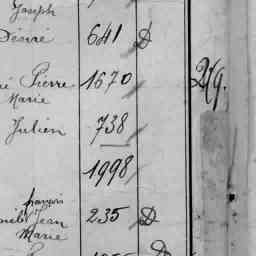 Joseph
Désiré 641 D
Pierre 1670
Marie
Julien 738
1998
françois
Jean 235 D
Marie
D